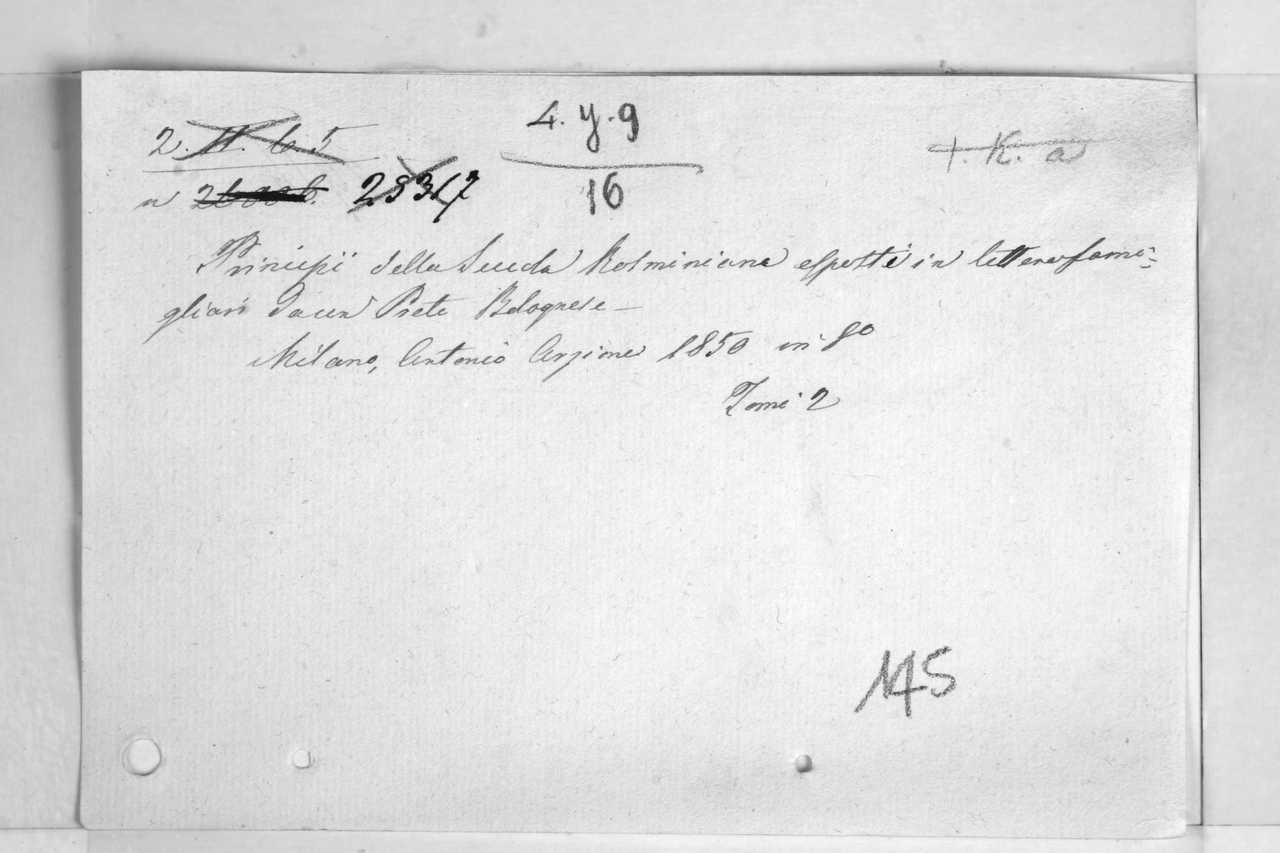 2. H. 6. 5
4. y. 9
16
+. K. a
n 28367
Principii della Scuola Rosminiana esposti in lettere fami-
gliari da un Prete Bolognese —
Milano, Antonio Arzione 1850 in 8º
Tomi 2
145